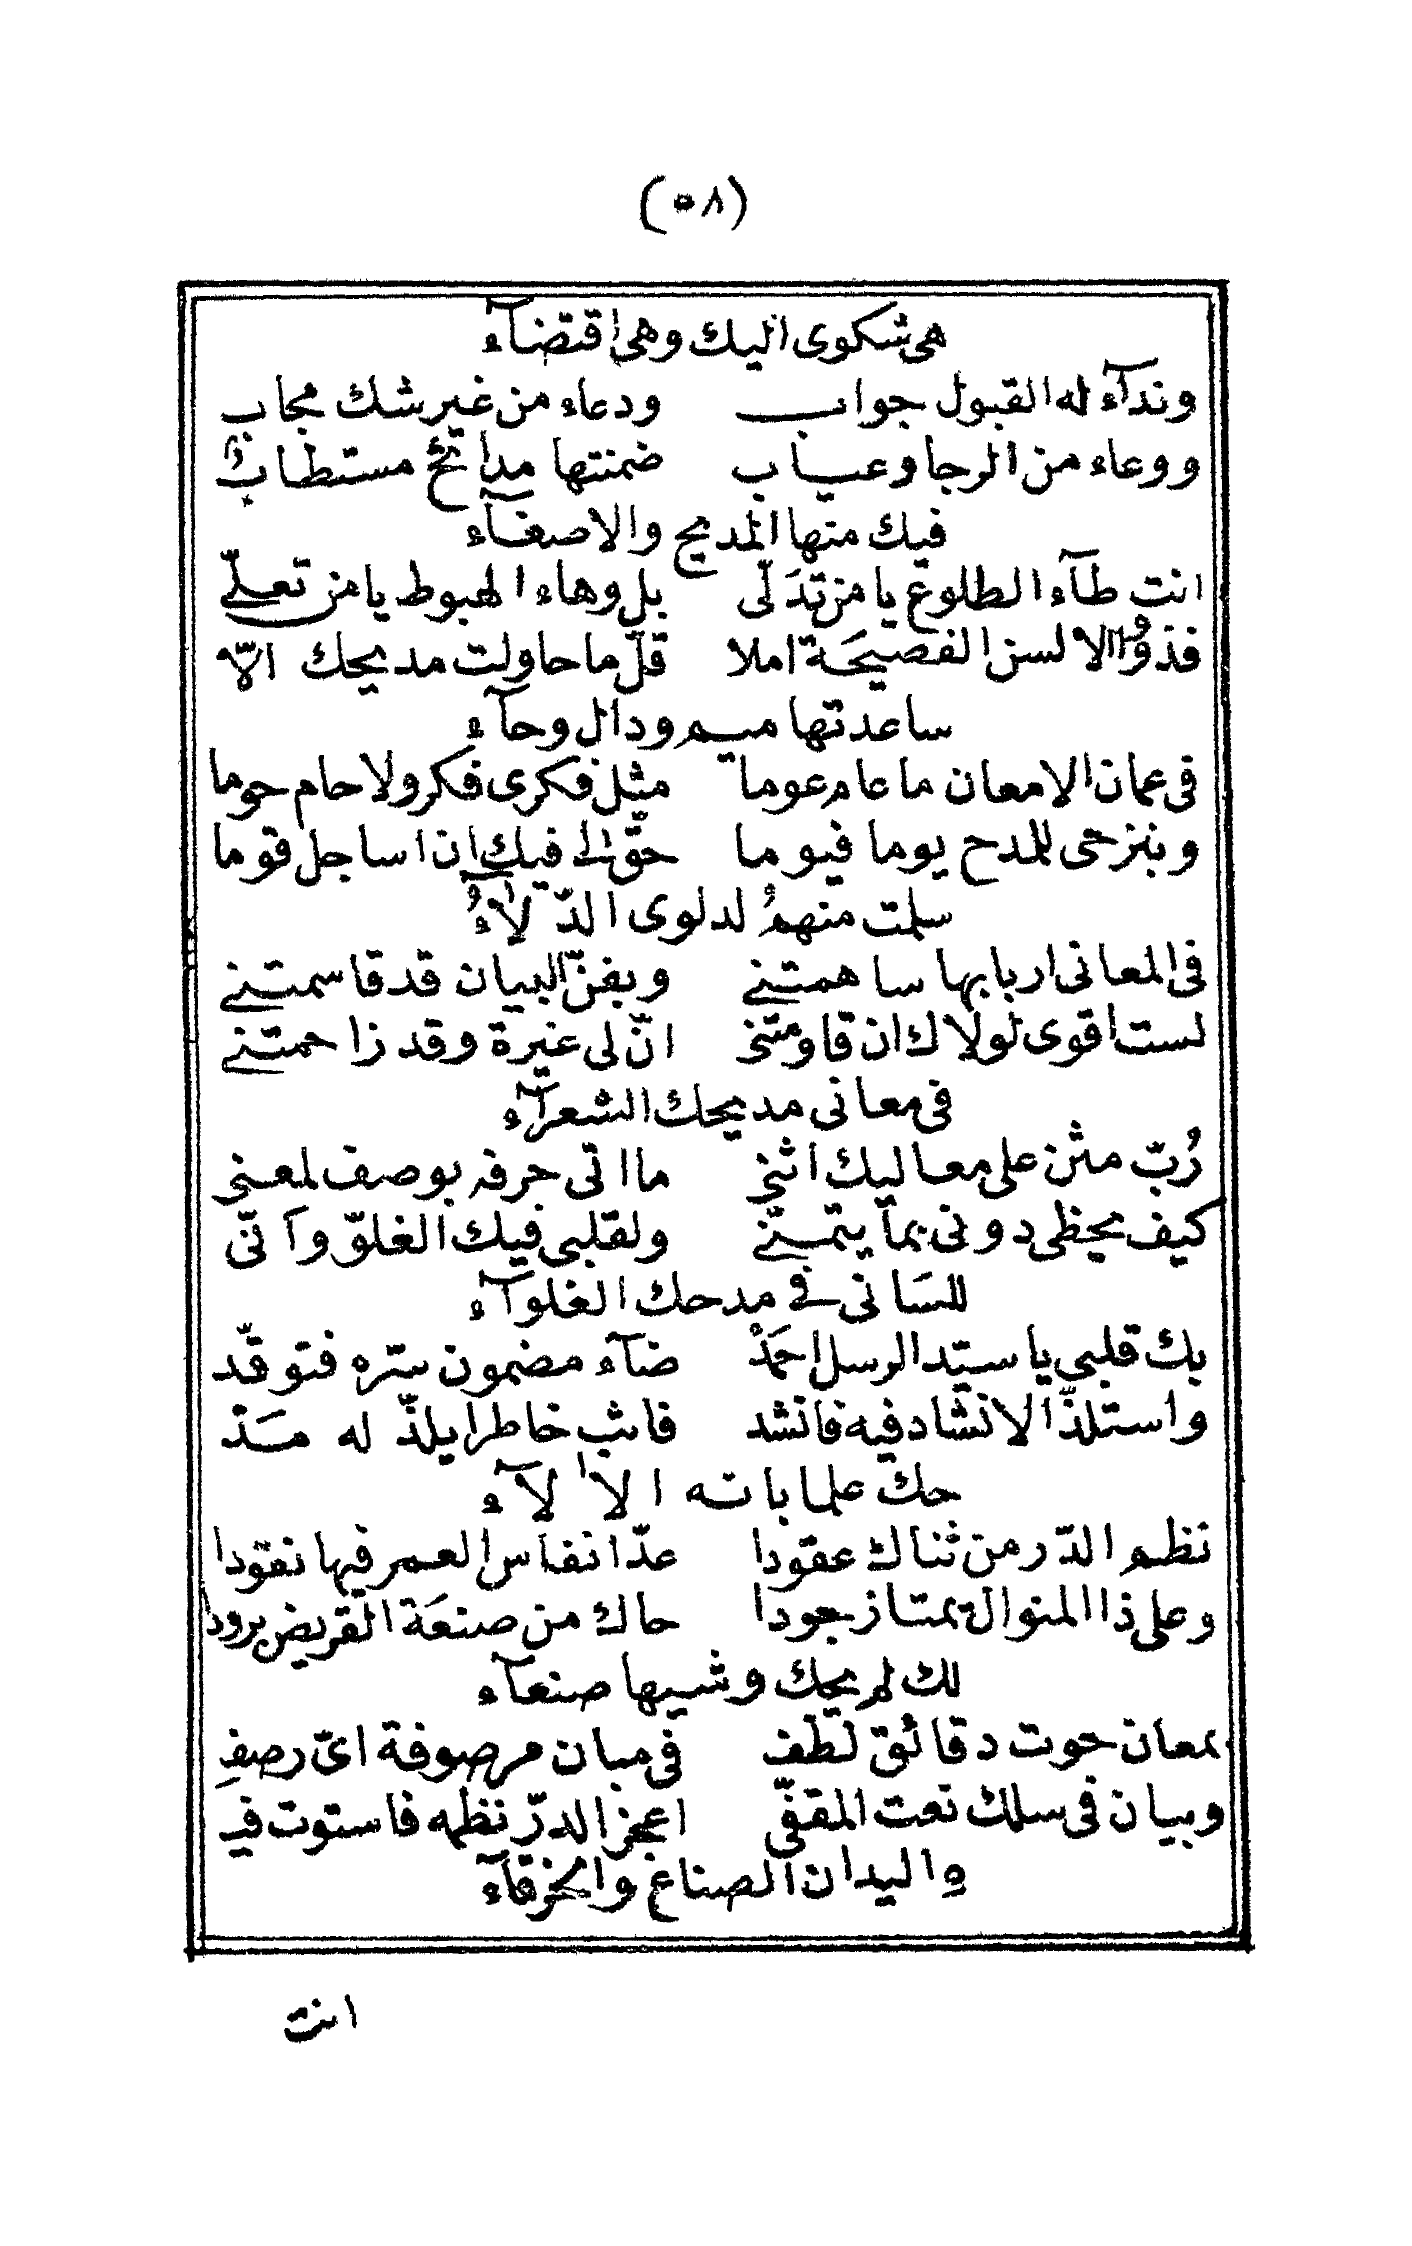 (٥٨)
هى شكوى اليك وهى اقتضآء
وندآء له القبول جواب ودعاء من غير شك مجاب
ووعاء من الرجا وعياب ضمنتها مدائح مستطاب
فيك منها المديح والاصغآء
انت طآء الطلوع يا من تدَلّى بل وهاء الهبوط يا من تعلّے
فذوُوا الالسن الفصيحَة املا قلّ ما حاولت مديحك الاّ
ساعدتها ميم ودال وحآء
فى عمان الامعان ما عام عوما مثل فكرى فكر ولا حام حوما
وبنزحى للمدح يوما فيوما حقّ لى فيك ان اساجل قوما
سلمت منهمُ لدلوى الدّلآءُ
فى المعانى اربابها ساهمتنے وبفنّ البيان قد قاسمتنے
لست اقوى لولاك ان قاومتنى انّ لى غيرة وقد زاحمتنے
فى معانى مديحك الشعرآء
رُبّ مثن على معاليك اثنى ما اتى حرفه بوصف لمعنى
كيف يحظى دونى بما يتمنّے ولقلبى فيك الغلوّ وانّى
للسَانى فے مدحك الغلوآء
بك قلبى يا سيّد الرسل احمَدْ ضآء مضمون ستره فتوقّد
واستلذّ الانشاد فيه فانشد فاثب خاطرا يلذّ له مَدْ
حك علما بانه الالآء
نظم الدّر من ثناك عقودا عدّ انفاس العمر فيها نقودا
وعلى ذا المنوال يمتاز جودا حاك من صنعَة القريض برودا
لك لم يحك وشيها صنعآء
بمعان حوت دقائق لطف فى مبان مرصوفة اىّ رصفِ
وبيان فى سلك نعت المقفّى اعجز الدرّ نظمه فاستوت فيـ
ـهِ اليدان الصناع والخرقآء
انت